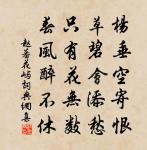 楊垂空寄恨
草碧會添愁
只有花無數
春風醉不休
趙蕃花嶼詞典網集